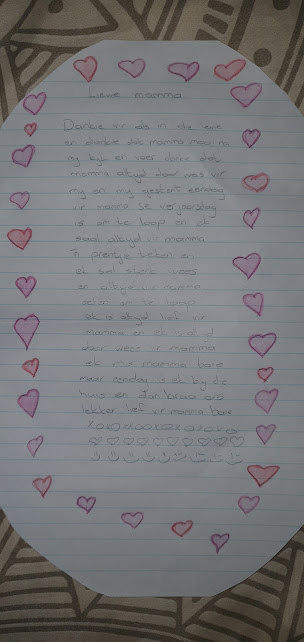 Liewe mamma
Dankie vir als in die lewe
en dankie dat mamma
my kyk en voer dankie dat
mamma altyd daar was vir
my en my
vir mamma se verjaarsdag
is om te loop en ek
saal altyd vir mamma
'n prentjie teken en
ek sal sterk wees
en altyd vir mamma
om te loop
ek is altyd lief vir
mamma en ek sal al
daar wees vir mamma
ek mis mamma baie
maar eendag is ek by die
huis en dan
lekker lief vir mamma baie